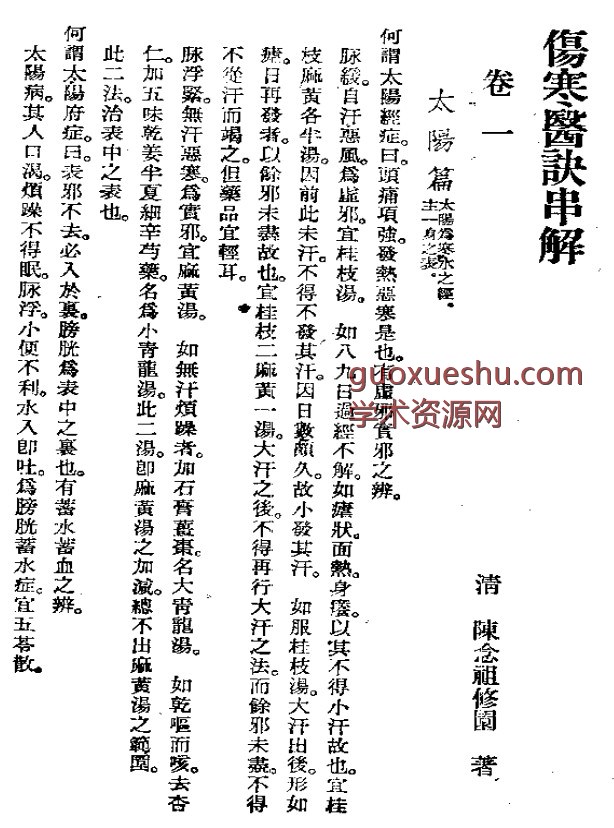 傷寒醫訣串解
卷一
清 陳念祖修園 著
太陽篇 太陽爲寒水之經。主一身之表。
何謂太陽經症。曰頭痛項強。發熱惡寒是也。有虛邪實邪之辨。
脉緩自汗惡風。爲虛邪。宜桂枝湯。 如八九日過經不解。如瘧狀。面熱。身癢。以其不得小汗故也。宜桂
枝麻黃各半湯。因前此未汗。不得不發其汗。因日數頗久。故小發其汗。 如服桂枝湯。大汗出後。形如
瘧。日再發者。以餘邪未盡故也。宜桂枝二麻黃一湯。大汗之後。不得再行大汗之法。而餘邪未盡。不得
不從汗而竭之。但藥品宜輕耳。
脉浮緊。無汗惡寒。爲實邪。宜麻黃湯。 如無汗煩躁者。加石膏薑棗。名大青龍湯。 如乾嘔而咳。去杏
仁。加五味乾姜半夏細辛芍藥。名爲小青龍湯。此二湯。卽麻黃湯之加減。總不出麻黃湯之範圍。
此二法。治表中之表也。
何謂太陽府症。曰表邪不去。必入於裏。膀胱爲表中之裏也。有蓄水蓄血之辨。
太陽病。其人口渴。煩躁不得眠。脉浮。小便不利。水入卽吐。爲膀胱蓄水症。宜五苓散。
guoxueshu.com
学术资源网